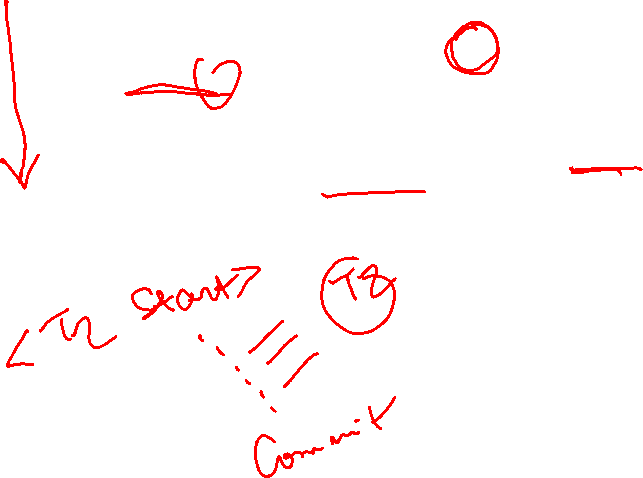 <Tn start>
T8
Commit